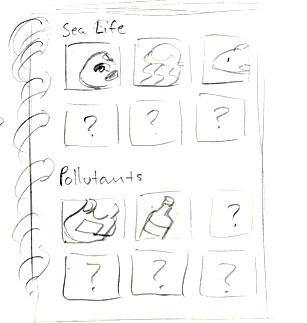 Sea Life
? ? ?
Pollutants
?
? ? ?